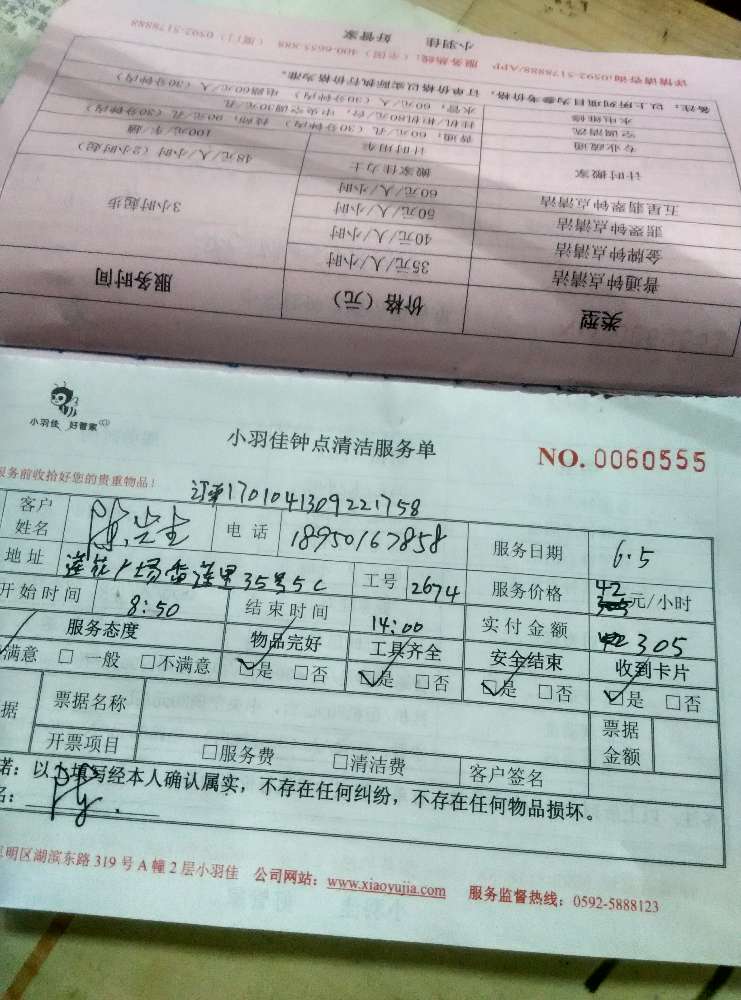 详情请咨询:0592-5178888/APP 服务热线:(全国)400-6655-888 (厦门)0592-5178888
小羽佳 好管家
备注:以上所列项目为参考价格,订单价格以实际执行价格为准。
水电维修 水管,60元/人/次(30分钟内) 电路60元/人/次(30分钟内)
空调清洗 挂机/柜机180元/台,中央空调30元/孔
专业疏通 普通:60元/孔(30分钟内) 特殊:90元/孔(30分钟内)
计时用车 100元/车/趟
计时搬家 搬家佳力士 48元/人/小时(2小时起)
五星翡翠钟点清洁 60元/人/小时
翡翠钟点清洁 50元/人/小时 3小时起步
金牌钟点清洁 40元/人/小时
普通钟点清洁 35元/人/小时
类型 价格(元) 服务时间
小羽佳 好管家
小羽佳钟点清洁服务单 NO. 0060555
服务前收拾好您的贵重物品!
订单1701041309221758
客户姓名 电话 18950167858 服务日期 6.5
地址 莲花广场香莲里35号5C 工号 2674 服务价格 42 元/小时
开始时间 8:50 结束时间 14:00 实付金额 305
服务态度 物品完好 工具齐全 安全结束 收到卡片
满意 □一般 □不满意 ☑是 □否 ☑是 □否 ☑是 □否 ☑是 □否
据 票据名称 票据金额
开票项目 □服务费 □清洁费 客户签名
诺:以上填写经本人确认属实,不存在任何纠纷,不存在任何物品损坏。
名:
思明区湖滨东路319号A幢2层小羽佳 公司网站:www.xiaoyujia.com 服务监督热线:0592-5888123